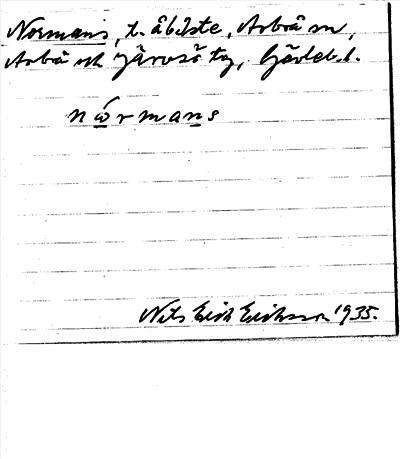 Normans, t. åbiste, Arbrå sn,
Arbrå och Järvsö tg, Gävleb. l.
nórmans
Nils Erik Eriksson 1935.